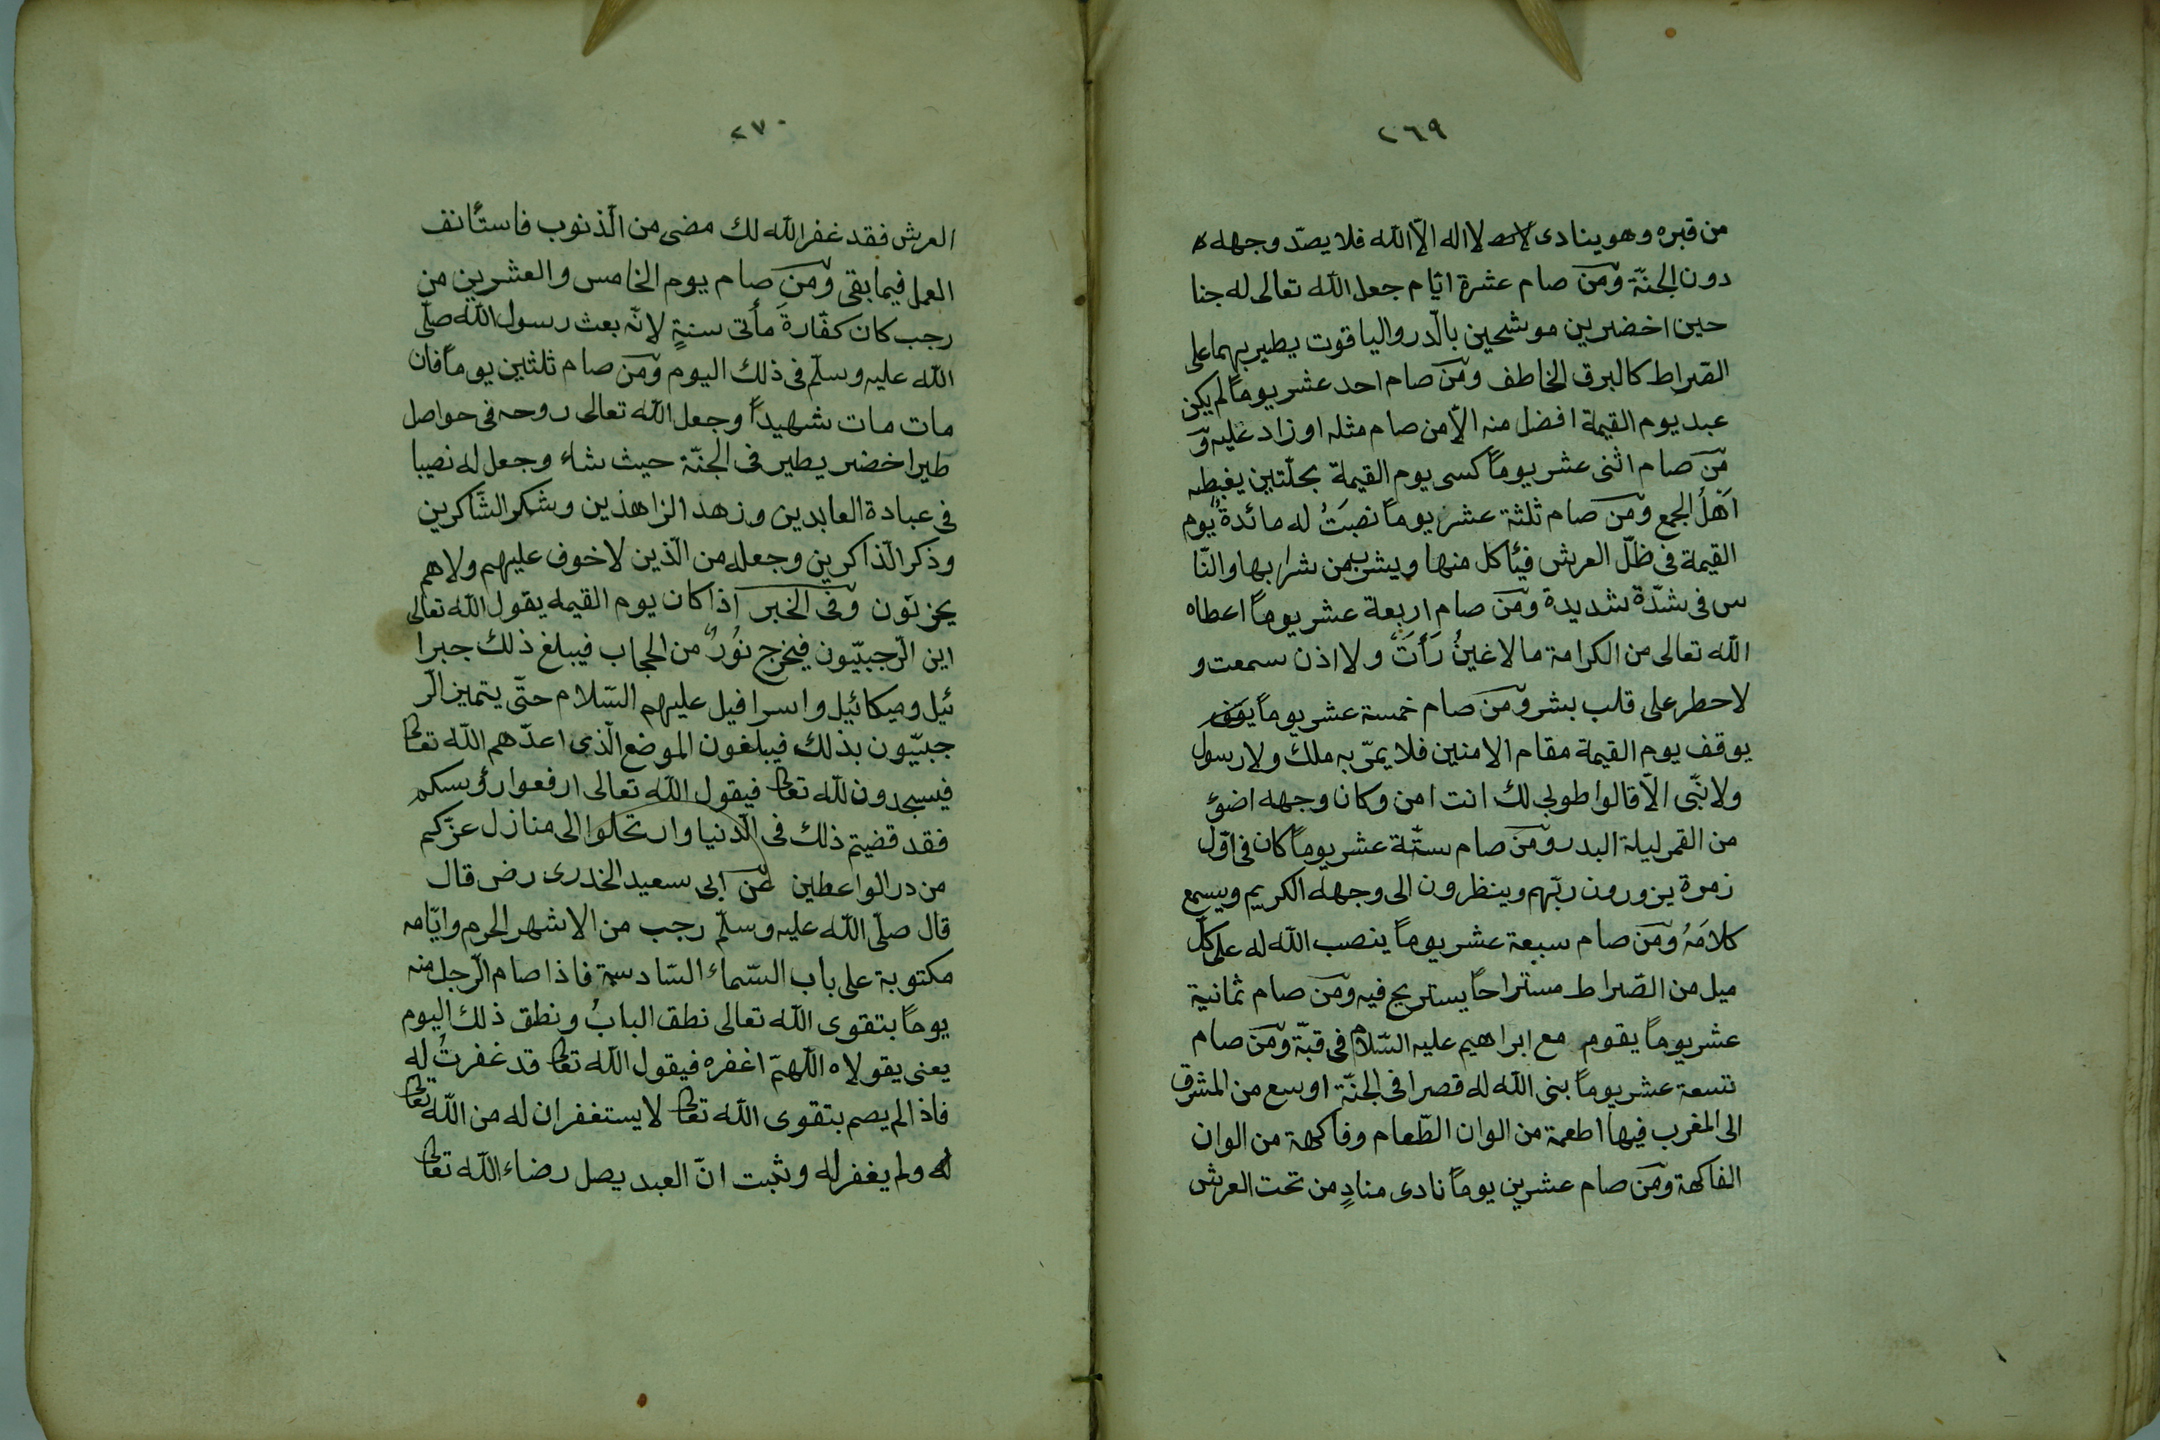 ٢٦٩
من قبره وهو ينادى لا اله الّا الله فلا يصدّ وجهه
دون الجنّة ومن صام عشرة ايّام جعل الله تعالى له جنا
حين اخضرين موشحين بالدّر والياقوت يطير بهما على
الصّراط كالبرق الخاطف ومن صام احد عشر يوماً لم يكن
عبد يوم القيمة افضل منه الّا من صام مثله او زاد عليه و
من صام اثنى عشر يوماً كسى يوم القيمة بحلّتين يغبطه
اَهلُ الجمع ومن صام ثلثة عشر يوماً نصبَتْ له مائدةٌ يوم
القيمة فى ظلّ العرش فيأكل منها ويشرب من شرابها والنّا
س فى شدّة شديدة ومن صام اربعة عشر يوماً اعطاه
الله تعالى من الكرامة ما لا عينٌ رَأتْ ولا اذن سمعت و
لا حطر على قلب بشر ومن صام خمسة عشر يوماً
يوقف يوم القيمة مقام الامنين فلا يمرّ به ملك ولا رسول
ولا نبّى الّا قالوا طوبى لك انت امن وكان وجهه اضوئ
من القمر ليلة البدر ومن صام ستّة عشر يوماً كان فى اوّل
زمرة يزورون ربّهم وينظرون الى وجهه الكريم ويسمع
كلامَهُ ومن صام سبعة عشر يوماً ينصب الله له على كلّ
ميل من الصّراط مستراحاً يستريح فيه ومن صام ثمانية
عشر يوماً يقوم مع ابراهيم عليه السّلام فى قبّة ومن صام
تسعة عشر يوماً بنى الله له قصرا فى الجنّة اوسع من المشرق
الى المغرب فيها اطعمة من الوان الطّعام وفاكهة من الوان
الفاكهة ومن صام عشرين يوماً نادى منادٍ من تحت العرش
٢٧٠
العرش فقد غفر الله لك مضى من الذّنوب فاستأنف
العمل فيما بقى ومن صام يوم الخامس والعشرين من
رجب كان كفّارةَ مأتى سنةٍ لانّه بعث رسول الله صلّى
الله عليه وسلّم فى ذلك اليوم ومن صام ثلثين يوماً فان
مات مات شهيداً وجعل الله تعالى روحه فى حواصل
طير اخضر يطير فى الجنّة حيث شاء وجعل له نصيبا
فى عبادة العابدين وزهد الزاهذين وشكر الشّاكرين
وذكر الذّاكرين وجعله من الّذين لا خوف عليهم ولا هم
يحزنون وفى الخبر اذا كان يوم القيمه يقول الله تعالى
اين الرّجبيّون فيخرج نُورٌ من الحجاب فيبلغ ذلك جبرا
ئيل وميكائيل واسرافيل عليهم السّلام حتّى يتميز الرّ
جبيّون بذلك فيبلغون الموضع الّذى اعدّهم الله تعالى
فيسجدون لله تعالى فيقول الله تعالى ارفعوا رؤسكم
فقد قضيتم ذلك فى الدّنيا وارتحلوا الى منازل عزّكم
من در الواعطين عن ابى سعيد الخدرى رض قال
قال صلّى الله عليه وسلّم رجب من الاشهر الحرم وايّامه
مكتوبة على باب السّماء السّادسة فاذا صام الرّجل منه
يوماً بتقوى الله تعالى نطق البابُ ونطق ذلك اليوم
يعنى يقولاه اللّهمّ اغفره فيقول الله تعالى قد غفرتُ له
فاذا لم يصم بتقوى الله تعالى لا يستغفران له من الله تعالى
له ولم يغفر له وثبت انّ العبد يصل رضاء الله تعالى